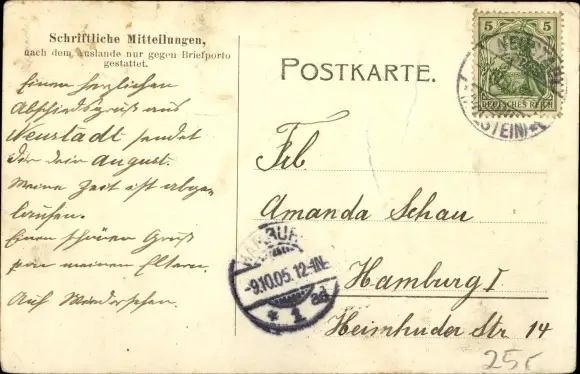 Schriftliche Mitteilungen,
nach dem Auslande nur gegen Briefporto
gestattet.
Einen herzlichen
Abschiedsgruß aus
Neustadt sendet
Dir dein August.
Meine Zeit ist abge-
laufen.
Einen schönen Gruß
von meinen Eltern.
Auf Wiedersehen.
POSTKARTE.
5 5
DEUTSCHES REICH
NEUSTADT
(HOLSTEIN)
Frl.
Amanda Schau
Hamburg I
Heimhuder Str. 14
HAMBURG
-9.10.05. 12-1N.
* 1 ad
25